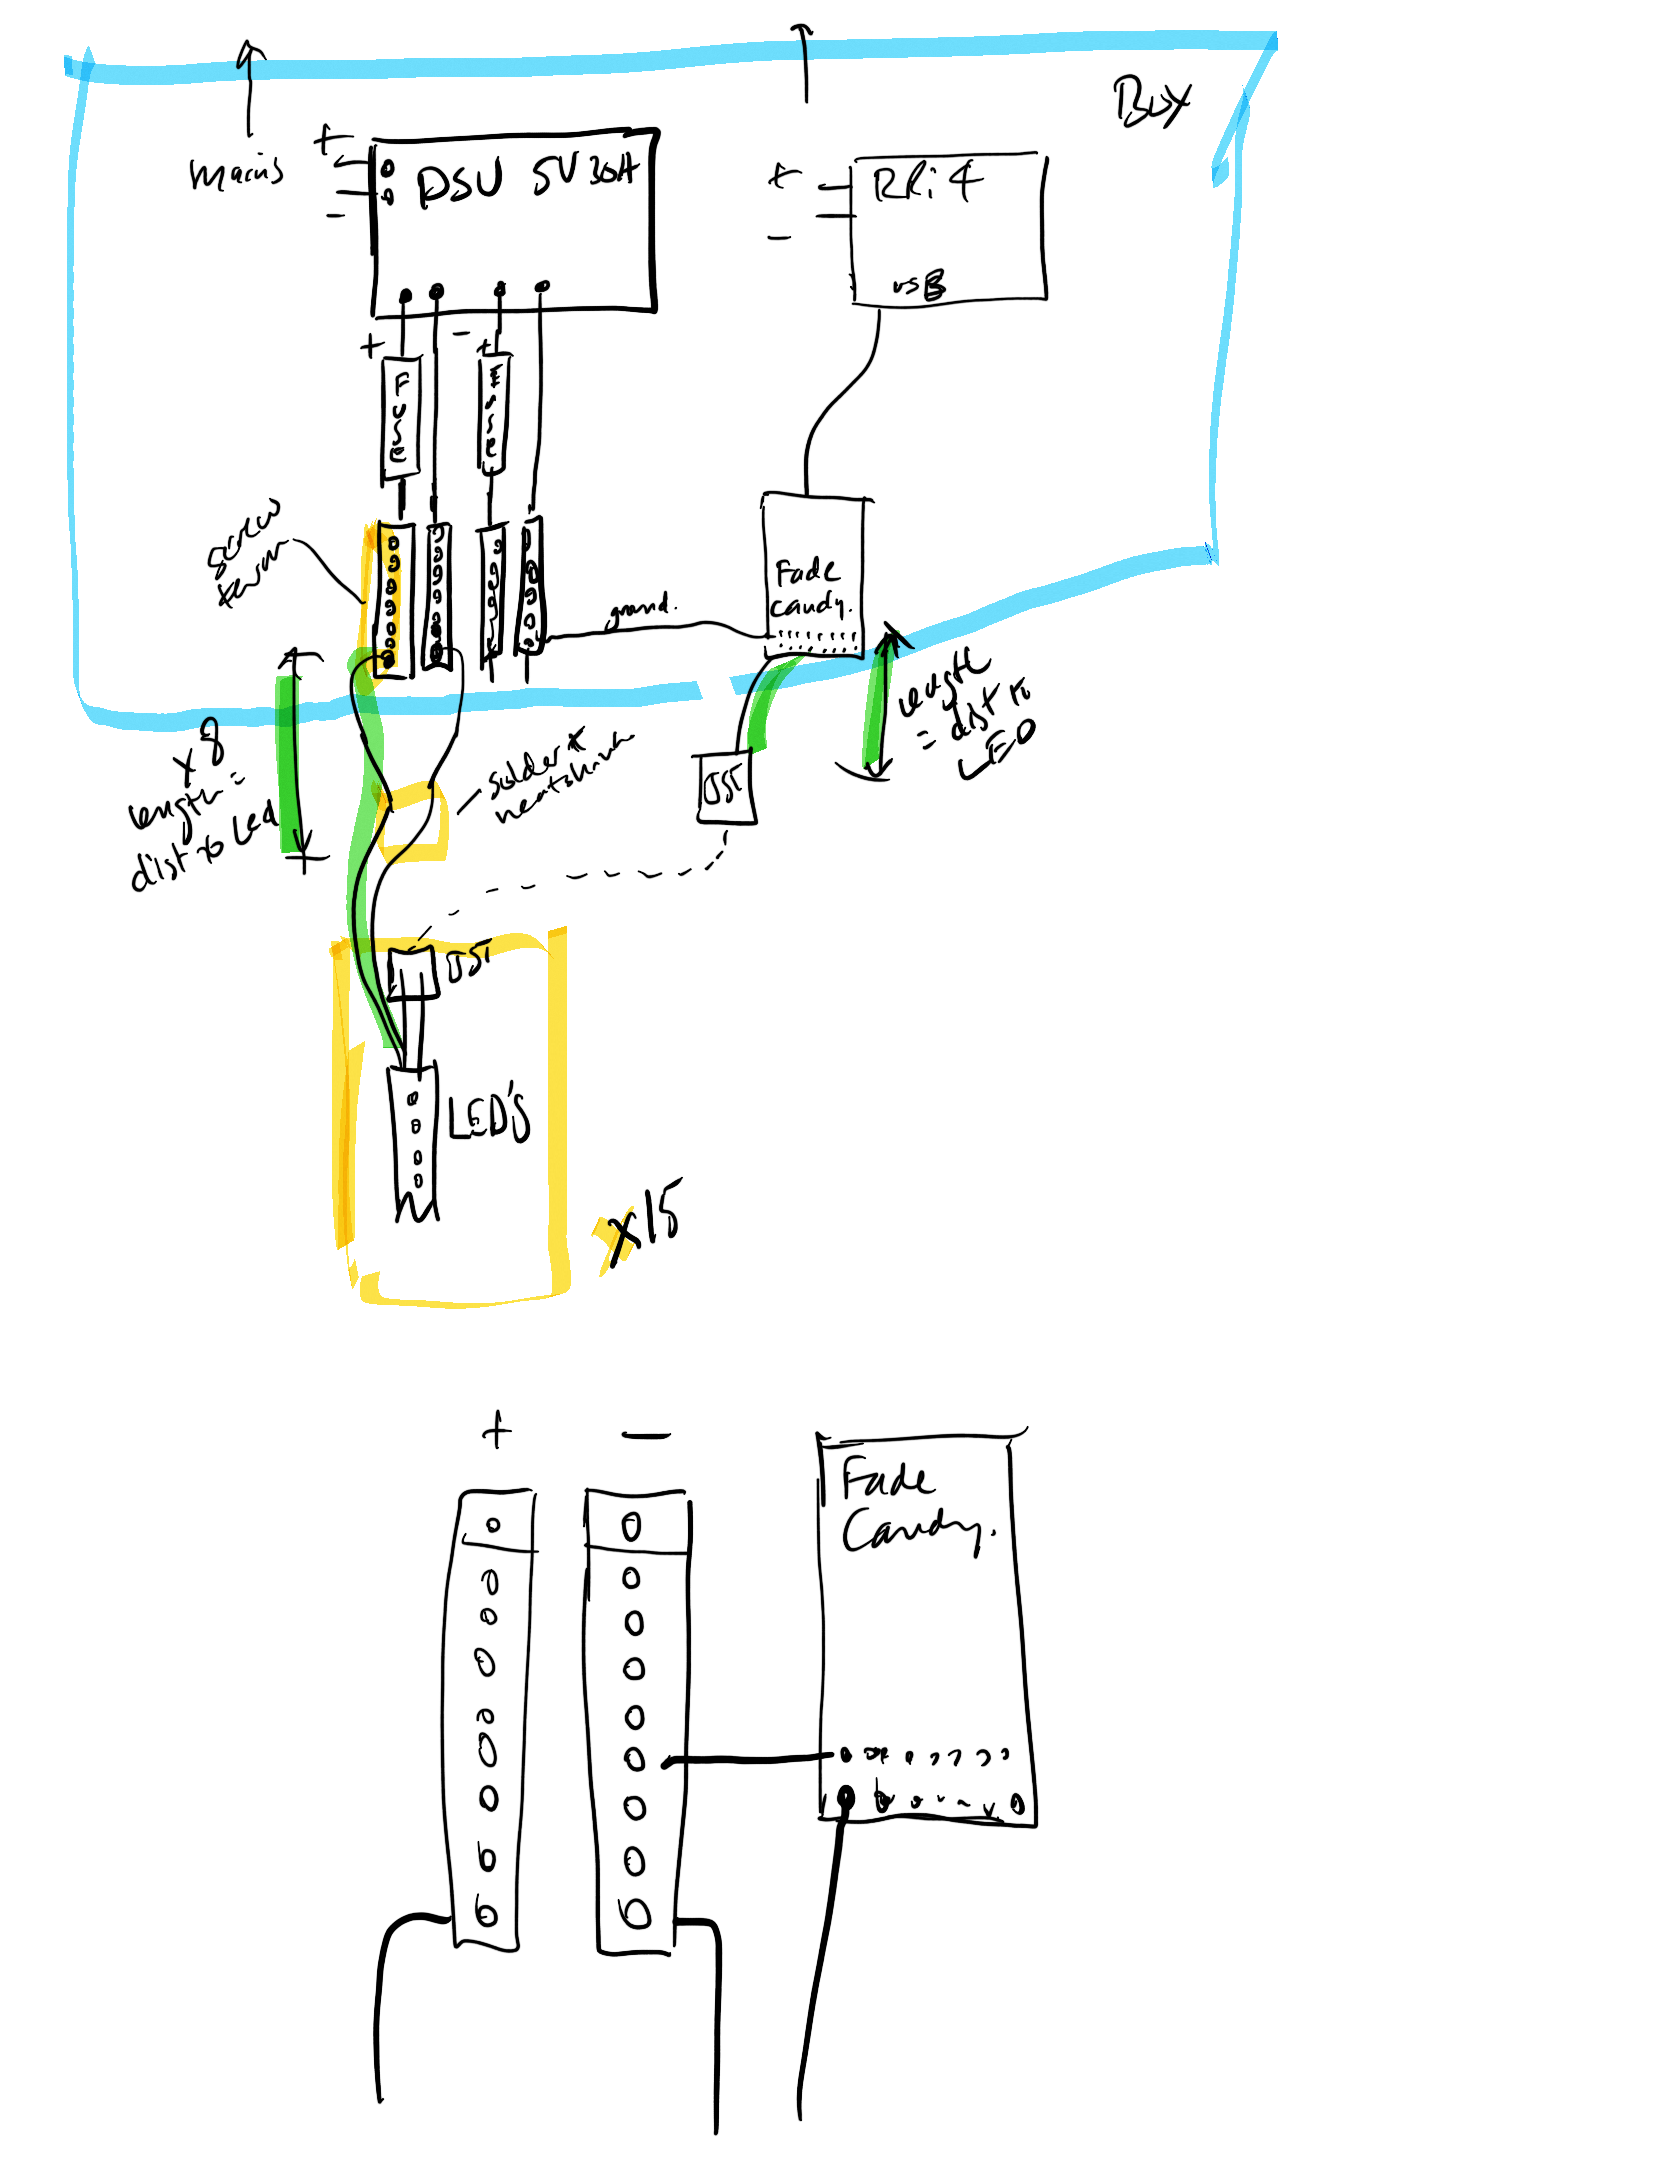 Box
mains
+
-
PSU 5V 30A
+
-
RPi 4
USB
+
-
+
Fuse
Fuse
screw
term
ground.
Fade
candy.
x 8
length =
dist to Led
solder +
heatshrink
length
= dist to
LED
JST
JST
LED'S
x15
+
-
Fade
Candy.